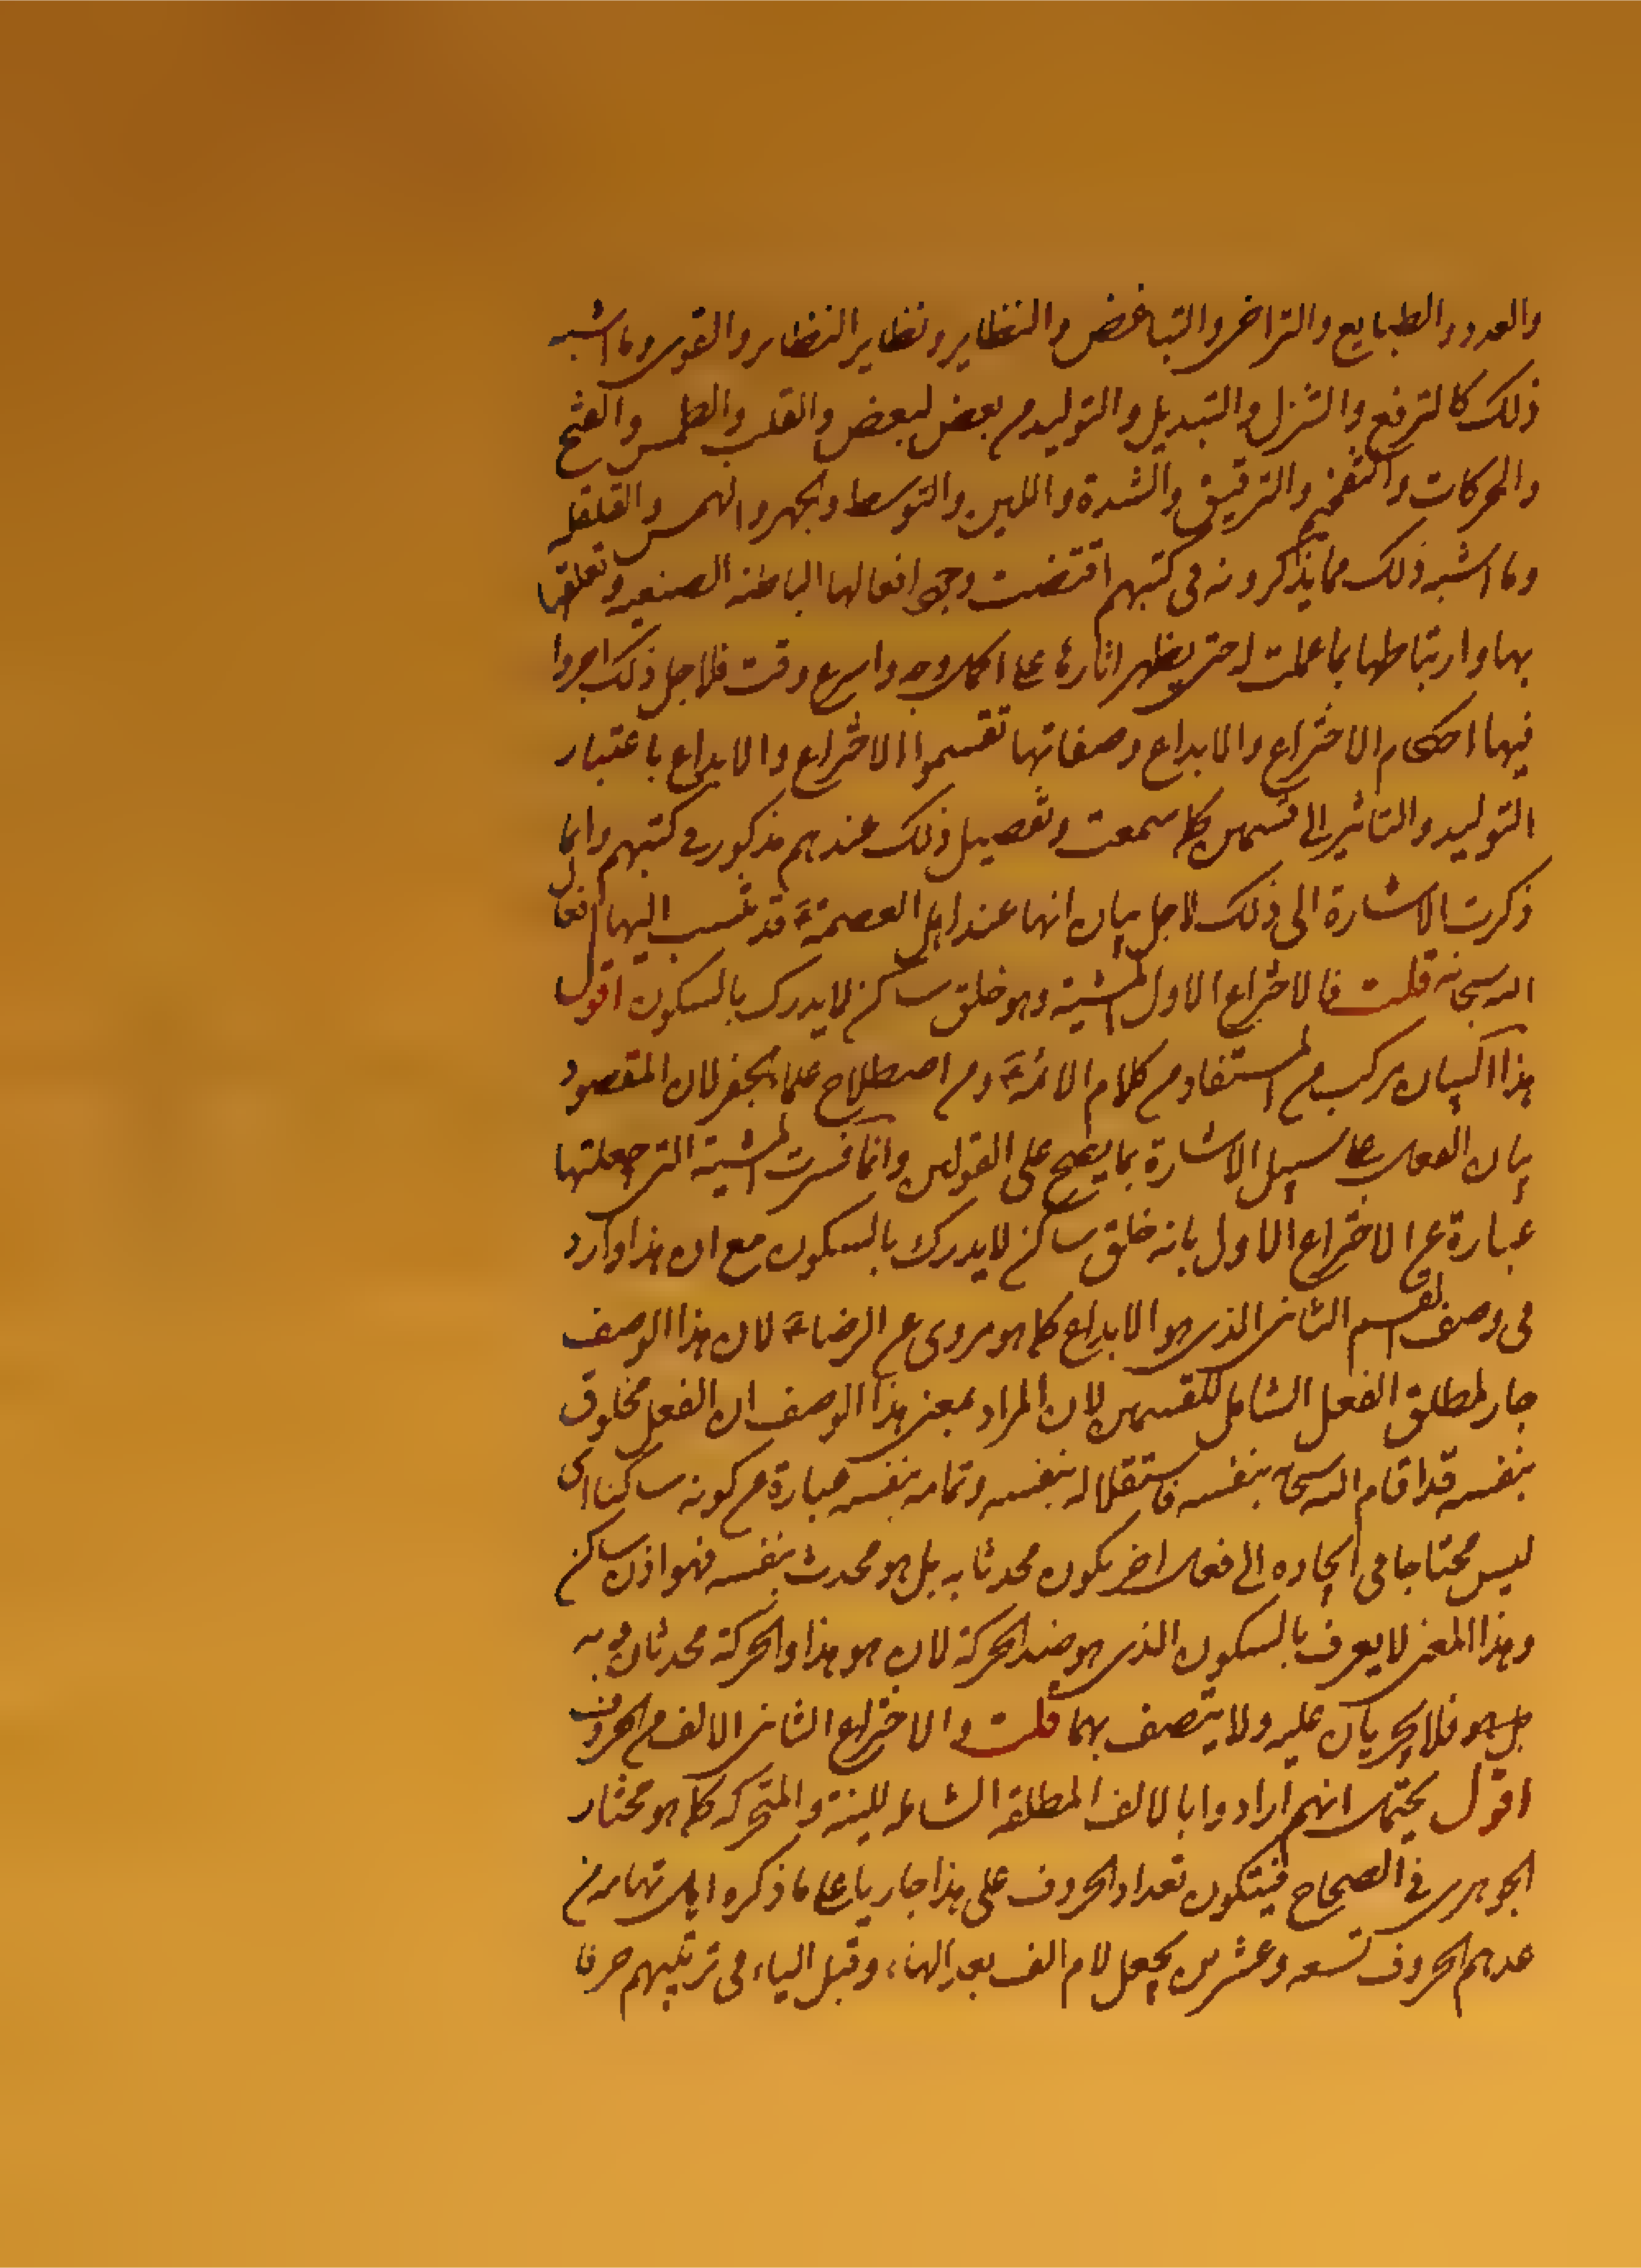 والعدد والطبايع والتراخى والتباغض والنظاير ونظاير النظاير والقوى وما اشبه
ذلك كالترفع والتنزل والتبديل والتوليد من بعض لبعض والقلب والطمس والفتح
والحركات والتفخيم والترقيق والشدة واللين والتوسط والجهر والهمس والقلقلة
وما اشبه ذلك مما يذكرونه فى كتبهم اقتضت وجوه افعالها الباطنة الصنعية وتعلقها
بها وارتباطها بما عملت له حتى يظهر اثارها على اكمل وجه واسرع وقت فلاجل ذلك اجروا
فيها احكام الاختراع والابداع وصفاتها تقسموا الاختراع والابداع باعتبار
التوليد والتاثير الى قسمين كما سمعت وتفصيل ذلك عندهم مذكور فى كتبهم وانما
ذكرت الاشارة الى ذلك لاجل بيان انها عند اهل العصمة ع قد ينسب اليها افعال
الله سبحانه قلت فالاختراع الاول المشية وهو خلق ساكن لا يدرك بالسكون اقول
هذا البيان مركب من المستفاد من كلام الائمة ع ومن اصطلاح علماء الجفر لان المقصود
بيان الفعل على سبيل الاشارة بما يصح على القولين وانما فسرت المشية التى جعلتها
عبارة عن الاختراع الاول بانه خلق ساكن لا يدرك بالسكون مع ان هذا وارد
فى وصف القسم الثانى الذى هو الابداع كما هو مروى عن الرضا ع لان هذا الوصف
جار لمطلق الفعل الشامل للقسمين لان المراد بمعنى هذا الوصف ان الفعل مخلوق
بنفسه قد اقام الله سبحانه بنفسه فاستقلاله بنفسه وتمامه بنفسه عبارة عن كونه ساكنا اى
ليس محتاجا فى ايجاده الى فعل اخر يكون محدثا به بل هو محدث بنفسه فهو اذن ساكن
وهذا المعنى لا يعرف بالسكون الذى هو ضد الحركة لان هو هذا والحركة محدثان به
بل هو فلا يجريان عليه ولا يتصف بهما قلت والاختراع الثانى الالف من الحروف
اقول يحتمل انهم ارادوا بالالف المطلقة الشاملة للينة والمتحركة كما هو مختار
الجوهرى فى الصحاح فيكون تعداد الحروف على هذا جاريا على ما ذكره اهل تهامة من
عدهم الحروف تسعة وعشرين بجعل لام الف بعد الهاء وقبل الياء فى ترتيبهم حرفا